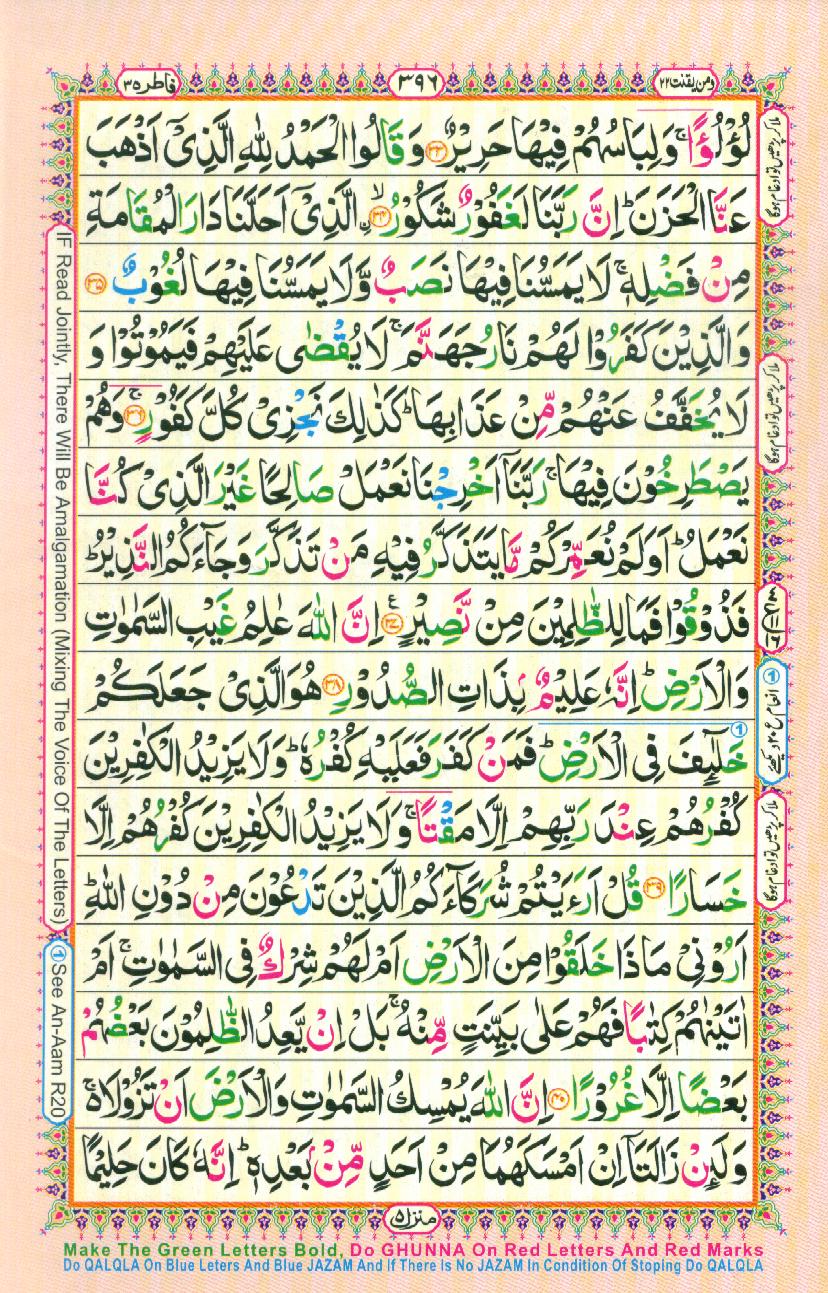 ومن یقنت ۲۲
۳۹۶
فاطر ۳۵
لُؤْلُؤًا ۚ وَلِبَاسُهُمْ فِيْهَا حَرِيْرٌ ﴿۳۳﴾ وَقَالُوا الْحَمْدُ لِلّٰهِ الَّذِيْٓ اَذْهَبَ
عَنَّا الْحَزَنَ ؕ اِنَّ رَبَّنَا لَغَفُوْرٌ شَكُوْرٌ ۙ﴿۳۴﴾ الَّذِيْٓ اَحَلَّنَا دَارَ الْمُقَامَةِ
مِنْ فَضْلِهٖ ۚ لَا يَمَسُّنَا فِيْهَا نَصَبٌ وَّلَا يَمَسُّنَا فِيْهَا لُغُوْبٌ ﴿۳۵﴾
وَالَّذِيْنَ كَفَرُوْا لَهُمْ نَارُ جَهَنَّمَ ۚ لَا يُقْضٰى عَلَيْهِمْ فَيَمُوْتُوْا وَ
لَا يُخَفَّفُ عَنْهُمْ مِّنْ عَذَابِهَا ؕ كَذٰلِكَ نَجْزِيْ كُلَّ كَفُوْرٍ ۚ﴿۳۶﴾ وَهُمْ
يَصْطَرِخُوْنَ فِيْهَا ۚ رَبَّنَآ اَخْرِجْنَا نَعْمَلْ صَالِحًا غَيْرَ الَّذِيْ كُنَّا
نَعْمَلُ ؕ اَوَلَمْ نُعَمِّرْكُمْ مَّا يَتَذَكَّرُ فِيْهِ مَنْ تَذَكَّرَ وَجَآءَكُمُ النَّذِيْرُ ؕ
فَذُوْقُوْا فَمَا لِلظّٰلِمِيْنَ مِنْ نَّصِيْرٍ ﴿۳۷﴾ اِنَّ اللّٰهَ عٰلِمُ غَيْبِ السَّمٰوٰتِ
وَالْاَرْضِ ؕ اِنَّهٗ عَلِيْمٌۢ بِذَاتِ الصُّدُوْرِ ﴿۳۸﴾ هُوَ الَّذِيْ جَعَلَكُمْ
خَلٰٓئِفَ فِي الْاَرْضِ ؕ فَمَنْ كَفَرَ فَعَلَيْهِ كُفْرُهٗ ؕ وَلَا يَزِيْدُ الْكٰفِرِيْنَ
كُفْرُهُمْ عِنْدَ رَبِّهِمْ اِلَّا مَقْتًا ۚ وَلَا يَزِيْدُ الْكٰفِرِيْنَ كُفْرُهُمْ اِلَّا
خَسَارًا ﴿۳۹﴾ قُلْ اَرَءَيْتُمْ شُرَكَآءَكُمُ الَّذِيْنَ تَدْعُوْنَ مِنْ دُوْنِ اللّٰهِ ؕ
اَرُوْنِيْ مَاذَا خَلَقُوْا مِنَ الْاَرْضِ اَمْ لَهُمْ شِرْكٌ فِي السَّمٰوٰتِ ۚ اَمْ
اٰتَيْنٰهُمْ كِتٰبًا فَهُمْ عَلٰى بَيِّنَتٍ مِّنْهُ ۚ بَلْ اِنْ يَّعِدُ الظّٰلِمُوْنَ بَعْضُهُمْ
بَعْضًا اِلَّا غُرُوْرًا ﴿۴۰﴾ اِنَّ اللّٰهَ يُمْسِكُ السَّمٰوٰتِ وَالْاَرْضَ اَنْ تَزُوْلَا ۬ۚ
وَلَئِنْ زَالَتَآ اِنْ اَمْسَكَهُمَا مِنْ اَحَدٍ مِّنْۢ بَعْدِهٖ ؕ اِنَّهٗ كَانَ حَلِيْمًا
منزل ۵
IF Read Jointly, There Will Be Amalgamation (Mixing The Voice Of The Letters)
①See An-Aam R20
ملا کر پڑھیں تو ادغام ہوگا
ملا کر پڑھیں تو ادغام ہوگا
ملا کر پڑھیں تو ادغام ہوگا
Make The Green Letters Bold, Do GHUNNA On Red Letters And Red Marks
Do QALQLA On Blue Leters And Blue JAZAM And If There Is No JAZAM In Condition Of Stoping Do QALQLA